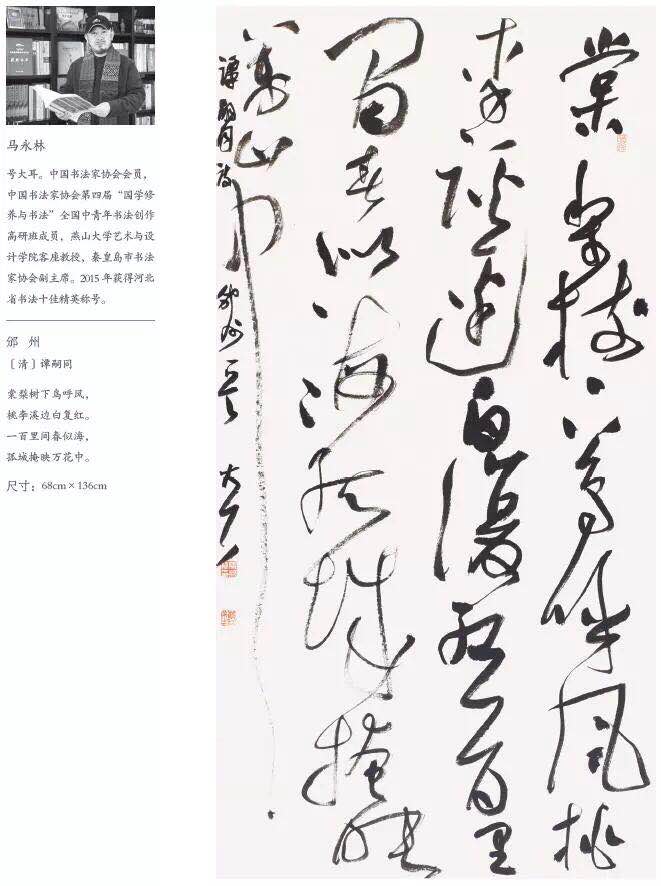 马永林
号大耳。中国书法家协会会员，
中国书法家协会第四届“国学修
养与书法”全国中青年书法创作
高研班成员，燕山大学艺术与设
计学院客座教授，秦皇岛市书法
家协会副主席。2015年获得河北
省书法十佳精英称号。
邠 州
〔清〕谭嗣同
棠梨树下鸟呼风，
桃李溪边白复红。
一百里间春似海，
孤城掩映万花中。
尺寸：68cm×136cm
棠梨树下鸟呼风桃
李溪边白复红一百里
间春似海孤城掩映
万花中
谭嗣同诗